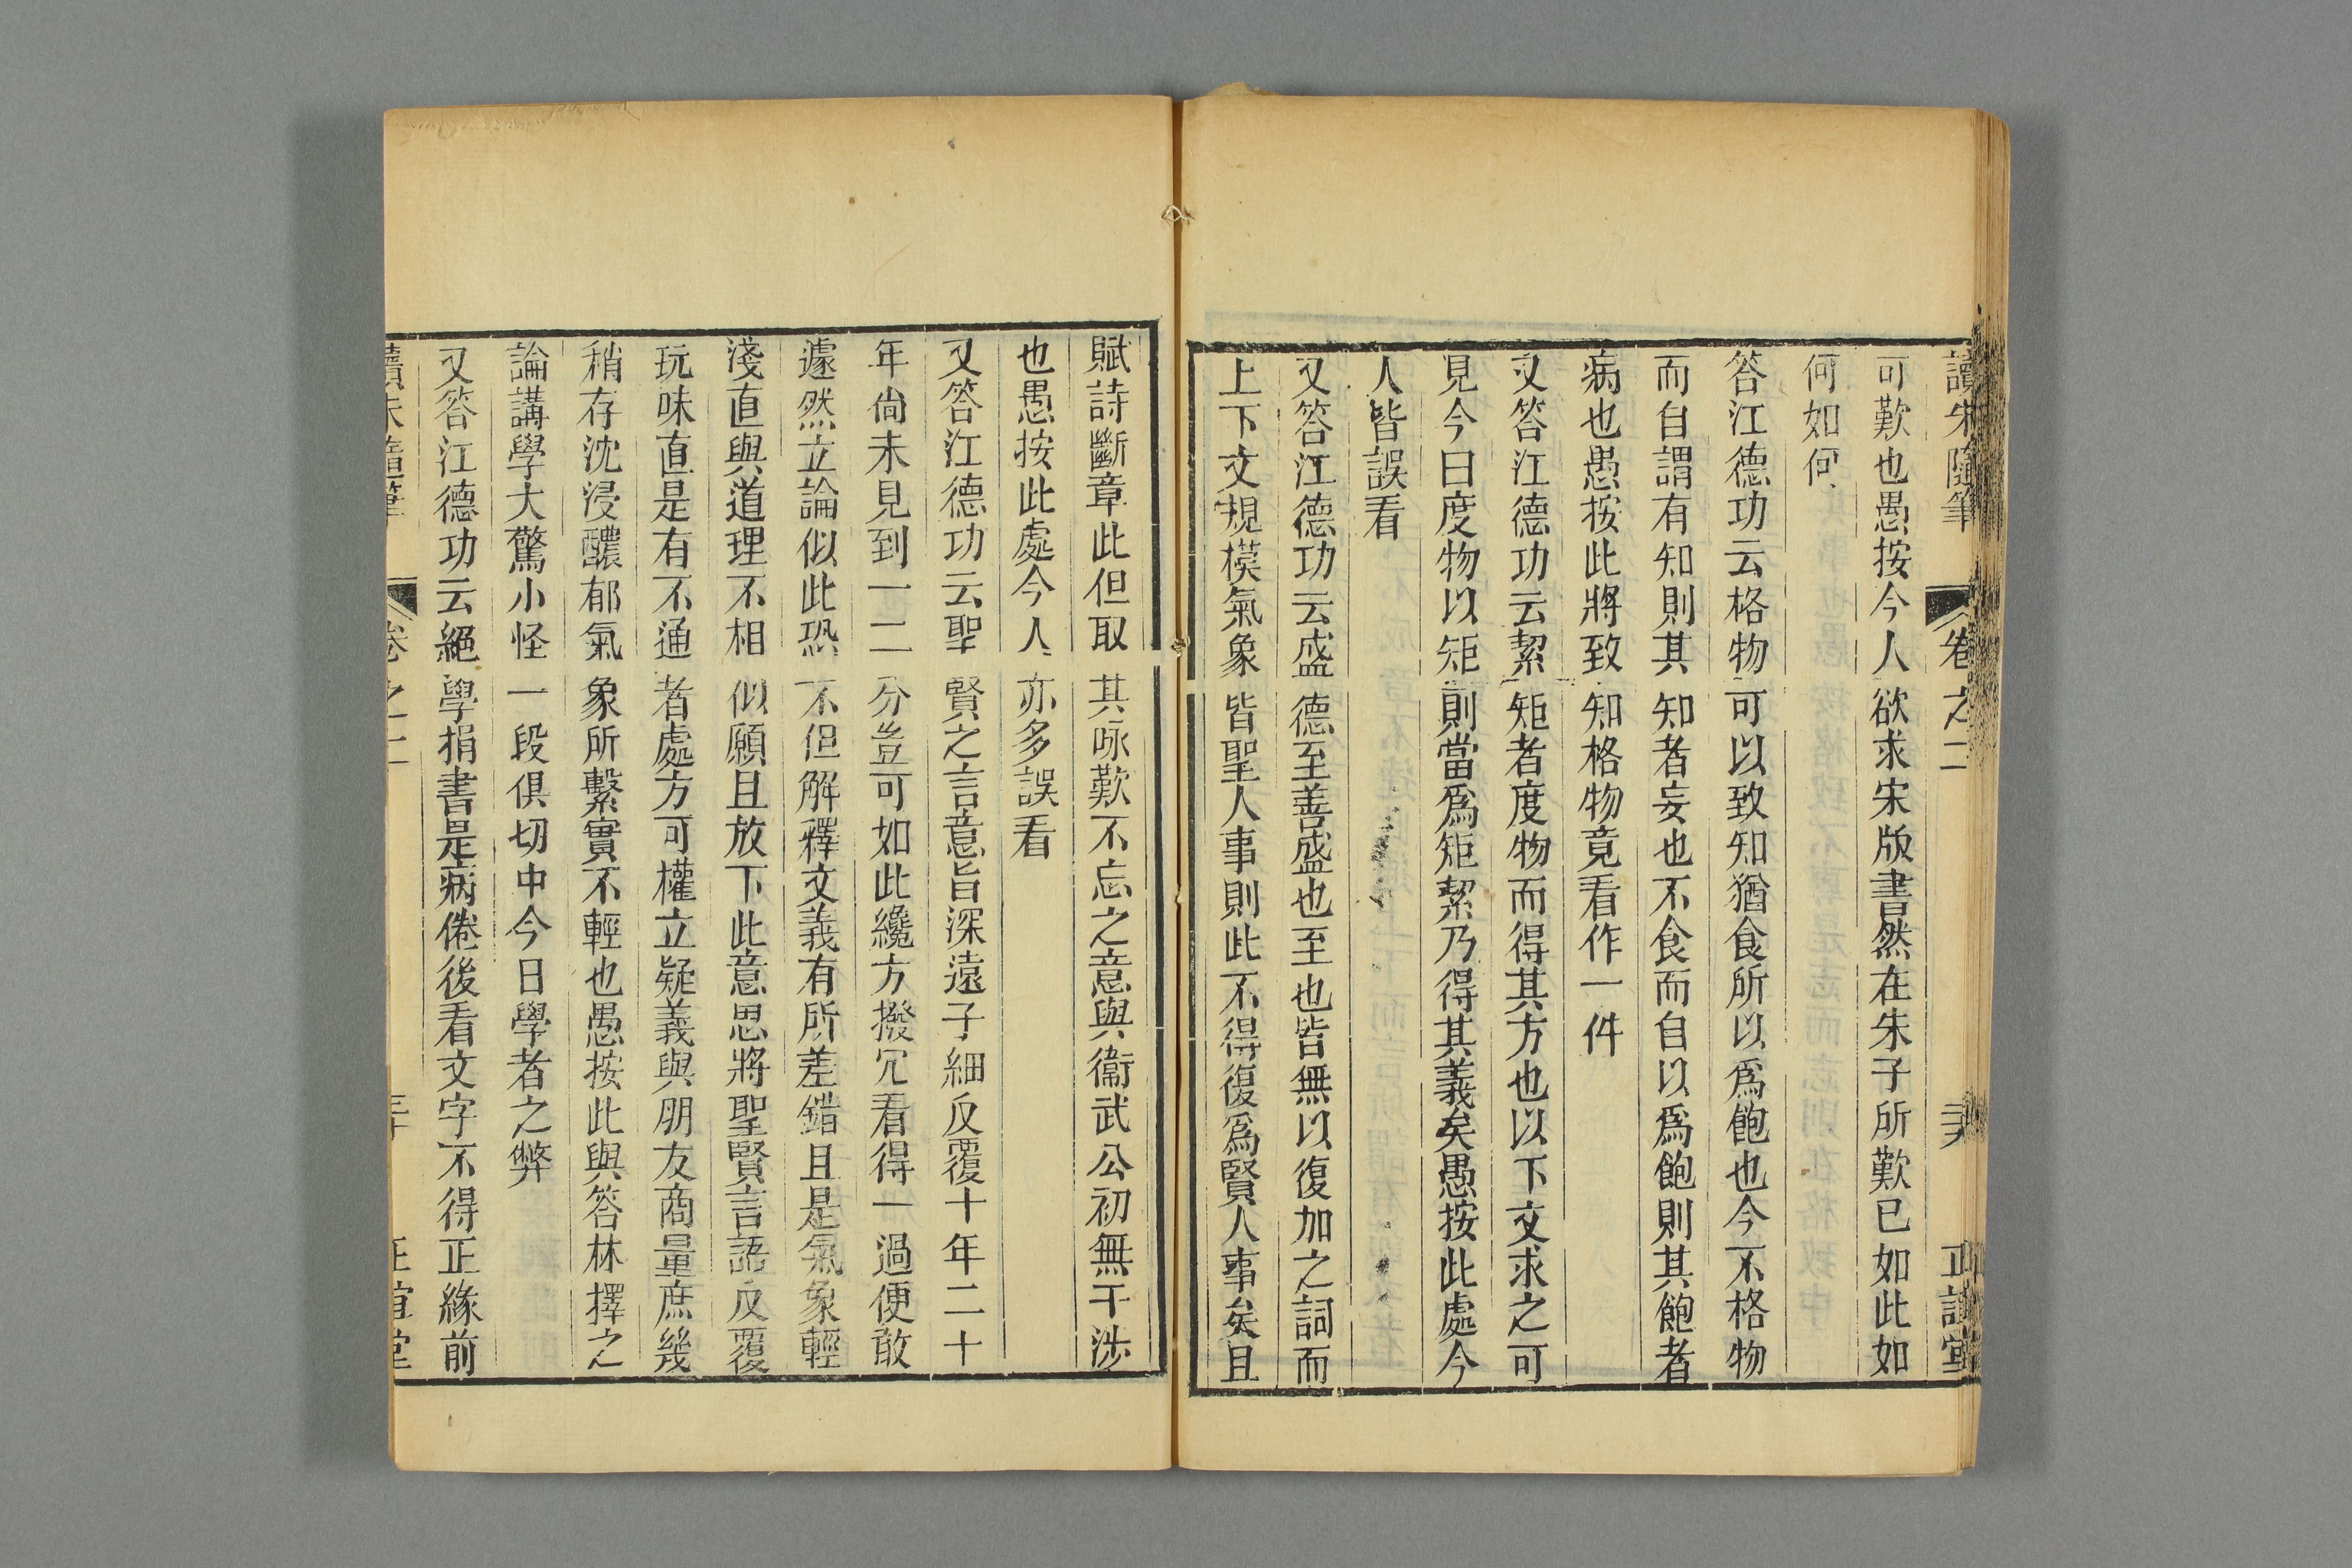 讀朱隨筆 卷之二  正誼堂
可歎也愚按今人欲求宋版書然在朱子所歎已如此如
何如何
答江德功云格物可以致知猶食所以爲飽也今不格物
而自謂有知則其知者妄也不食而自以爲飽則其飽者
病也愚按此將致知格物竟看作一件
又答江德功云絜矩者度物而得其方也以下文求之可
見今曰度物以矩則當爲矩絜乃得其義矣愚按此處今
人皆誤看
又答江德功云盛德至善盛也至也皆無以復加之詞而
上下文規模氣象皆聖人事則此不得復爲賢人事矣且
賦詩斷章此但取其咏歎不忘之意與衞武公初無干涉
也愚按此處今人亦多誤看
又答江德功云聖賢之言意旨深遠子細反覆十年二十
年尙未見到一二分豈可如此纔方撥冗看得一過便敢
遽然立論似此恐不但解釋文義有所差錯且是氣象輕
淺直與道理不相似願且放下此意思將聖賢言語反覆
玩味直是有不通者處方可權立疑義與朋友商量庶幾
稍存沈浸醲郁氣象所繫實不輕也愚按此與答林擇之
論講學大驚小怪一段俱切中今日學者之弊
又答江德功云絕學捐書是病倦後看文字不得正緣前
讀朱隨筆 卷之二 三十 正誼堂